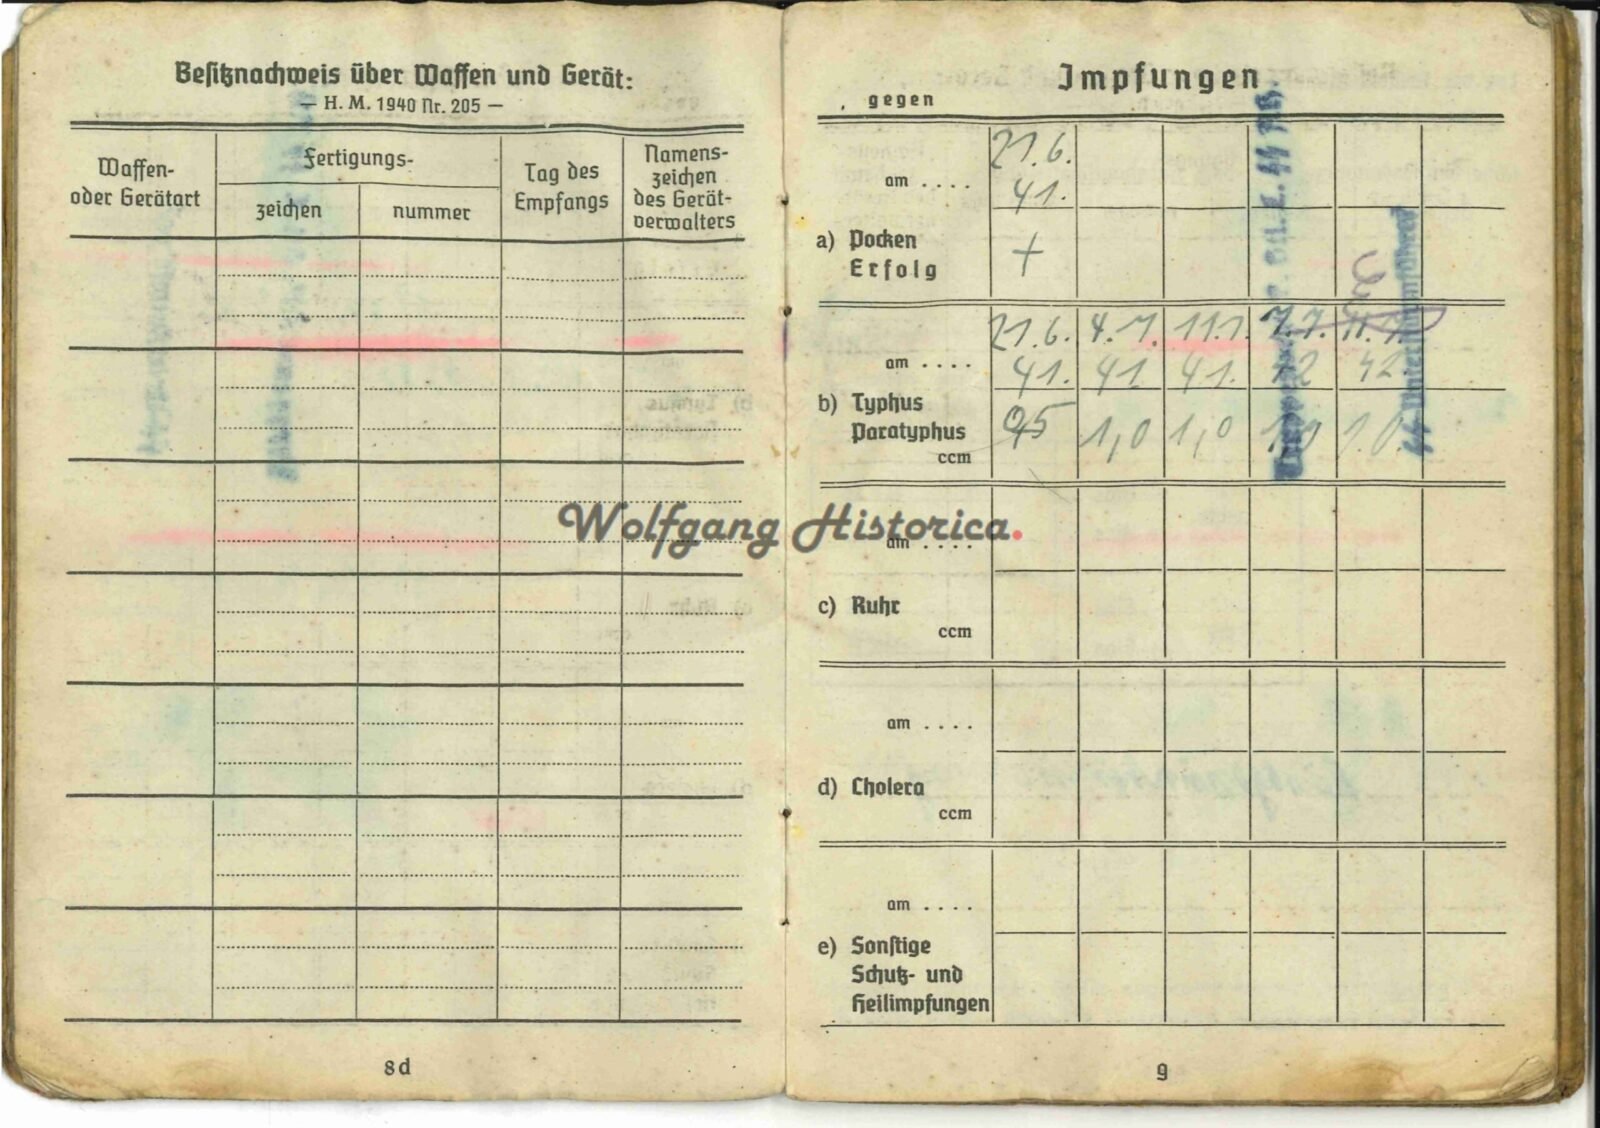 Besitznachweis über Waffen und Gerät:
— H. M. 1940 Nr. 205 —
Waffen-
oder Gerätart
Fertigungs-
zeichen
nummer
Tag des
Empfangs
Namens-
zeichen
des Gerät-
verwalters
8d
Impfungen
gegen
am . . . .
21.6.
41.
a) Pocken
Erfolg
+
am . . . .
21.6. 4.7. 11.7. 7.7.
41. 41 41. 42 42
b) Typhus
Paratyphus
ccm
0,5 1,0 1,0 1,0 1.0.
Wolfgang Historica.
am . . . .
c) Ruhr
ccm
am . . . .
d) Cholera
ccm
am . . . .
e) Sonstige
Schutz- und
Heilimpfungen
9